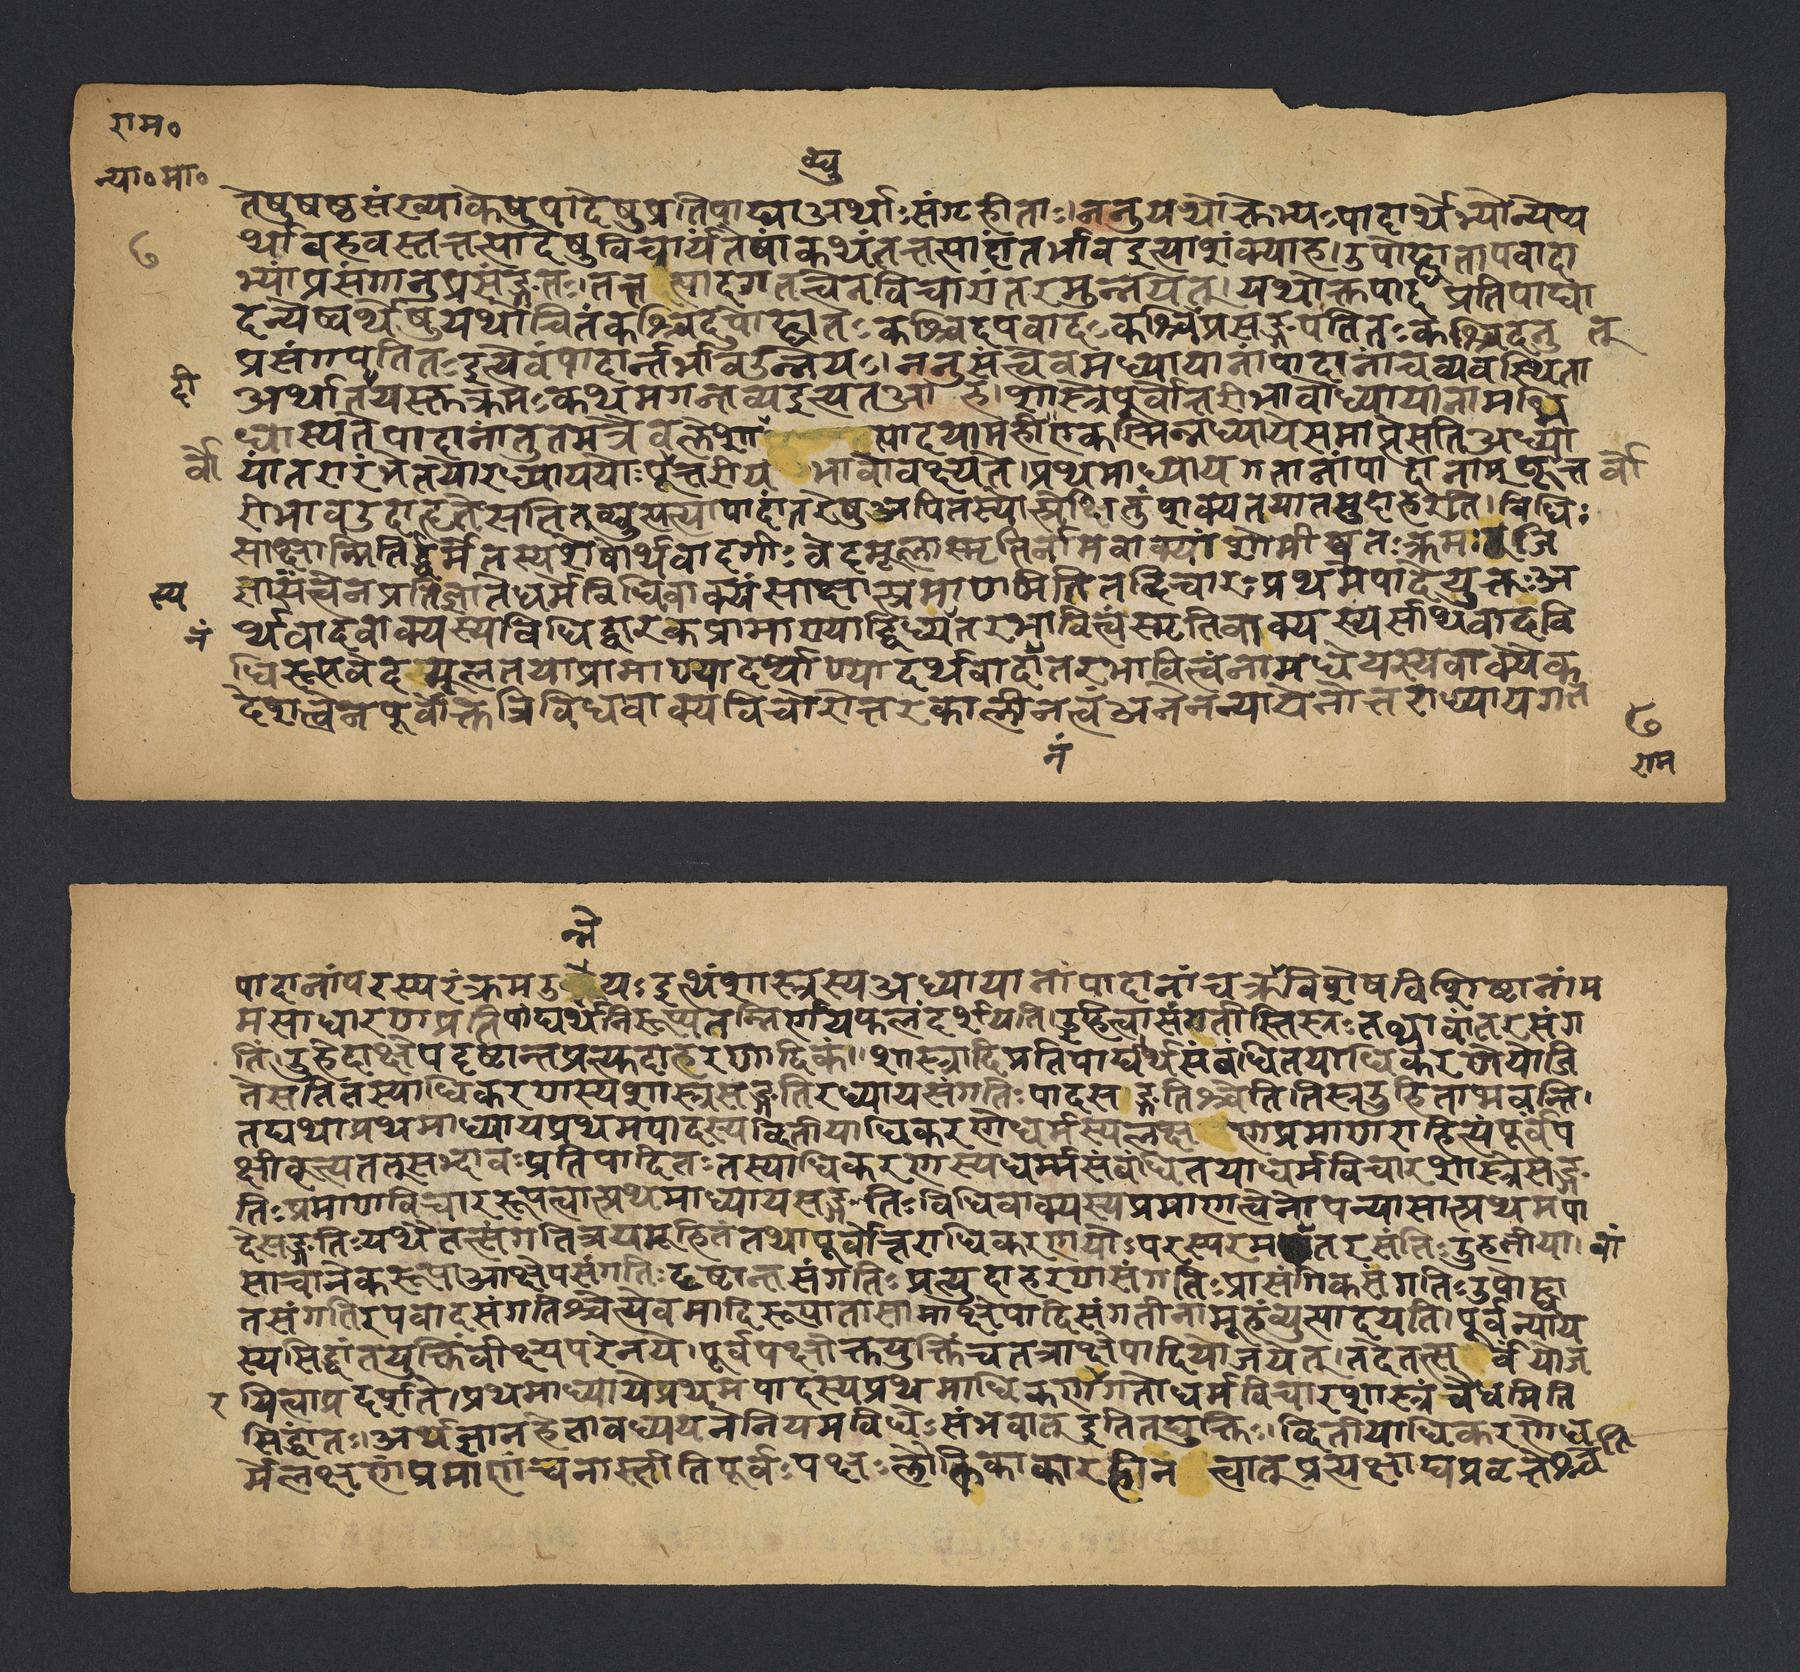 राम०
न्या०मा०
घु
तेषुषष्ठसंख्याकेषुपादेषुप्रतिपाद्याअर्थाःसंगृहीताः।ननुयथोक्तेभ्यःपादार्थेभ्योन्येप्य
र्थाबहवस्तत्तत्पादेषुविचार्यंतेषांकथंतत्तत्पादांतर्भावइत्याशंक्याह।उपोद्घातापवादा
भ्यांप्रसंगानुप्रसङ्गतः।तत्तत्पादगतत्वेनविचारांतरमुन्नयेत्।यथोक्तपादप्रतिपाद्या
दन्येष्वर्थेषुयथोचितंकश्चिदुपोद्घातःकश्चिदपवादःकश्चित्प्रसङ्गपतितःकश्चिदनु
प्रसंगपतितःइत्येवंपादार्न्तर्भावउन्नेयः।ननुसंत्वेवमध्यायानांपादानांचव्यवस्थिता
दी
अर्थास्तेयस्तुक्रमःकथमगन्तव्यइत्यतआह।शास्त्रेपूर्वोत्तरीभावोध्यायानाम
ध्यास्यत्पादानांतुतमत्रैवलेशा पादयामही एकस्मिन्नध्यायेसमाप्तेसतिअध्या
र्वो
यांतरारंभेतयोरध्याययोःपूत्तरीय भावोवक्ष्यते।प्रथमाध्यायगतानांपादानामपूत्त
र्वो
रीभावउदाहृतेसतितव्द्युत्पत्त्यापादांतरेषुअपितस्योत्प्रेक्षितुंशक्यतयातमुदाहरति।विधिः
साक्षान्मितिर्द्धर्मेतस्यशेषार्थवादगीःवेदमूलास्मृतिर्नामवाक्यांशोमीष्वतःक्रमःजि
ज्ञासत्वेनप्रतिज्ञातेधर्मेविधिवाक्यंसाक्षात्प्रमाणमितितद्विचारःप्रथमेपादेयुक्तःअ
स्य
र्थवादवाक्यस्यविधिद्वारकप्रामाण्याद्विध्यंतरभावित्वंस्मृतिवाक्यस्यसार्थवादवि
नं
धिरूपवेदमूलतयाप्रामाण्यादर्थवादांतरभावित्वंनामधेयस्यवाक्यैक
देशत्वेनपूर्वोक्तत्रिविधवाक्यविचारोत्तरकालीनत्वंअनेनन्यायेनोत्तराध्यायगत
नं
राम
न्ने
पादानांपरस्परंक्रमउयःइत्थंशास्त्रस्यअध्यायानांपादानांचक्रमविशेषविशिष्टानांम
मसाधारणप्रतिपाद्यर्थनिरूप्यतन्निर्णयफलंदर्शयति।ऊहित्वासंगतीस्तिस्रःतथावांतरसंग
तिं।ऊहेदाक्षेपदृष्टान्तप्रत्यक्दाहरणादिकं।।शास्त्रादिप्रतिपाद्यर्थसंबंधितयाधिकरणेयोजि
तेसतितस्याधिकरणस्यशास्त्रसङ्गतिरध्यायसंगतिःपादसङ्गतिश्चेतितिस्रऊहिताभवन्ति।
तद्यथाप्रथमाध्यायप्रथमपादस्यद्वितीयाधिकरणेधर्मस्यलक्षणप्रमाणराहित्यंपूर्वप
क्षीकृत्यतत्सभ्दावःप्रतिपादितःतस्याधिकरणस्यधर्म्मसंबंधितयाधर्मविचारशास्त्रेसङ्ग
तिःप्रमाणविचाररूपत्वात्प्रथमाध्यायसङ्गतिःविधिवाक्यस्यप्रमाणत्वेनोपन्यासात्प्रथमपा
देसङ्गतिःयथैतत्संगतित्रयमूहितंतथापूर्वोत्तराधिकरणयोःपरस्परमतरसंतिःऊहनीया।
वां
साचानेकरूपाआक्षेपसंगतिःदृष्टान्तसंगतिःप्रत्युदाहरणसंगतिःप्रासंगिकसंगतिःउपोद्घा
तसंगतिरपवादसंगतिश्चेत्येवमादिरूपातासामाक्षेपादिसंगतीनामूहंव्युत्पादयति।पूर्वन्याय
स्यसिद्धांतयुक्तिंवीक्ष्यपरेनये।पूर्वपक्षोक्तयुक्तिंचतत्राक्षेपादियोजयेत्।तदेतत्सर्वंयोज
र
यित्वाप्रदर्शते।प्रथमाध्यायेप्रथमपादस्यप्रथमाधिकणेगतोधर्मविचारशास्त्रंवैधमिति
सिद्धांतः।अर्थज्ञानहेतावध्ययनेनियमविधेःसंभवात्इतितद्युक्तिः।द्वितीयाधिकरणेध
र्मेलक्षणंप्रमाणंचनास्तीतिपूर्वःपक्षःलौकिकाकारहीनत्वात्प्रत्यक्षाद्यप्रवृत्तेश्चेति